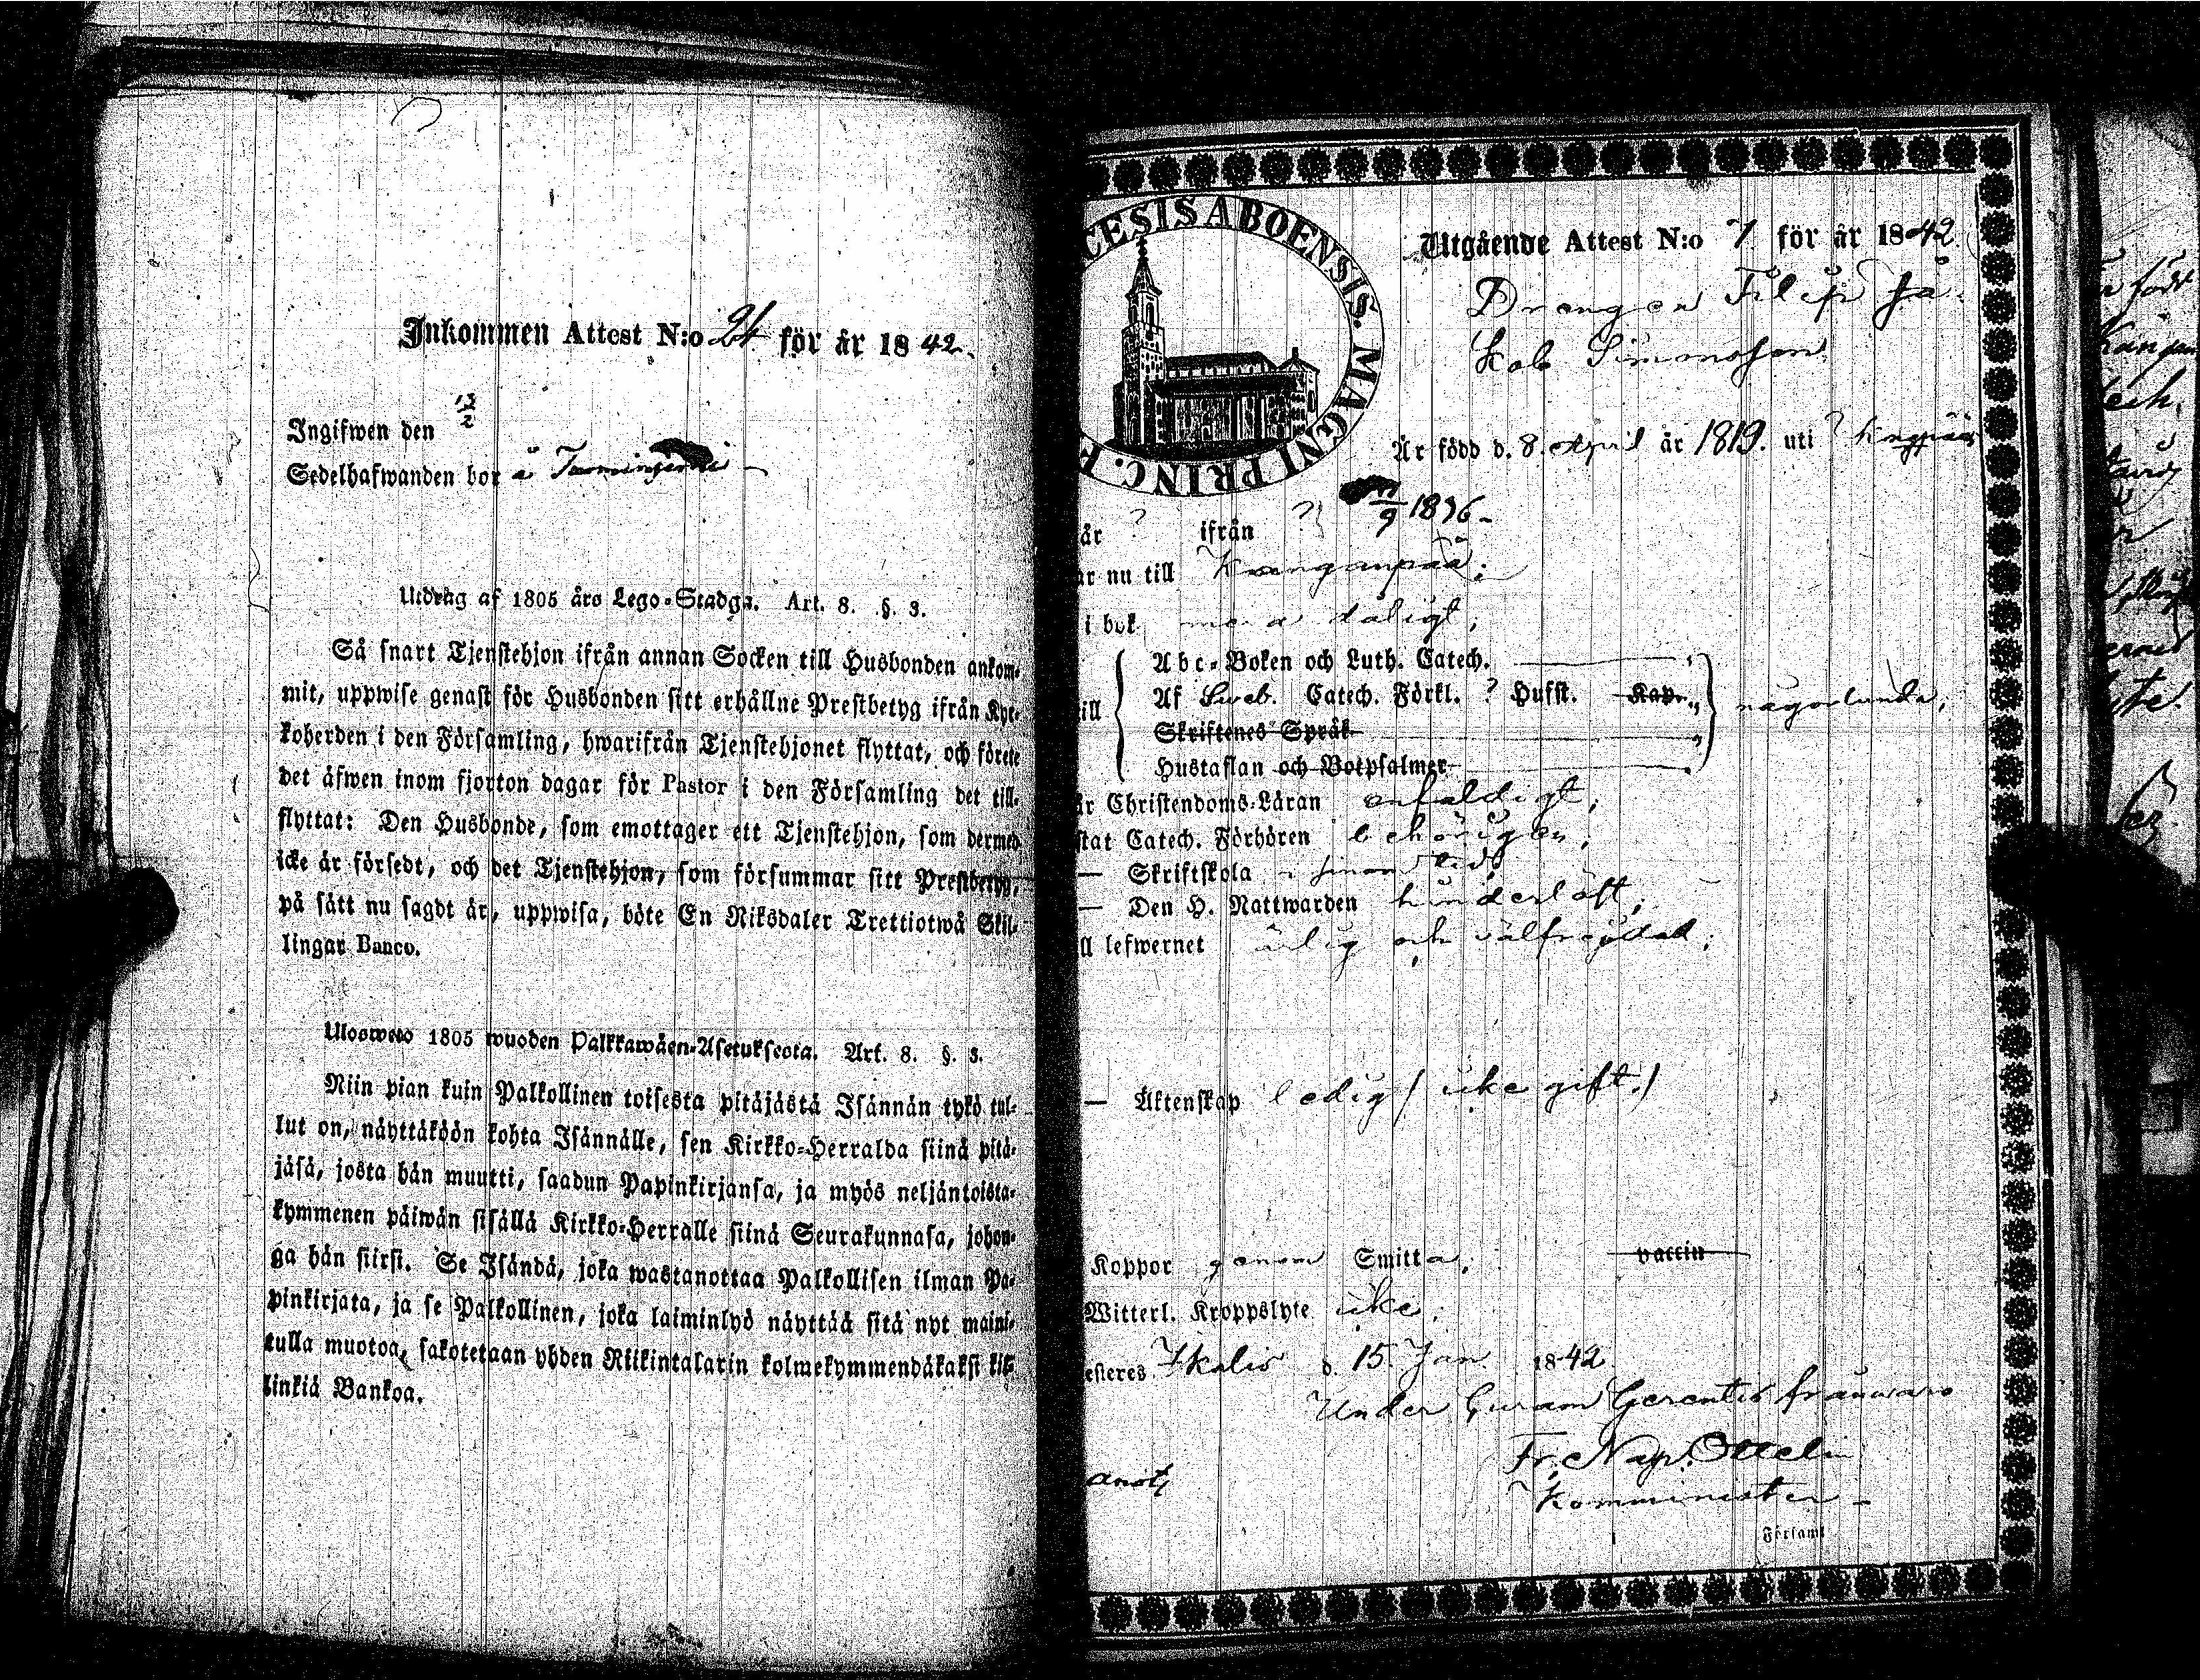 Inkommen Attest N:o 24 för år 1842.
Ingifwen den 13/2
Sedelhafwanden bor å
Utdrag af 1805 års Lego-Stadga. Art. 8. §. 3.
Så snart Tjenstehjon ifrån annan Socken till Husbonden ankom-
mit, uppwise genast för Husbonden sitt erhållne Prestbetyg ifrån Kyr-
koherden i den Församling, hwarifrån Tjenstehjonet flyttat, och förete
det äfwen inom fjorton dagar för Pastor i den Församling det till-
flyttat: Den Husbonde, som emottager ett Tjenstehjon, som dermed
icke är försedt, och det Tjenstehjon, som försummar sitt Prestbetyg,
på sätt nu sagdt är, uppwisa, böte En Riksdaler Trettiotwå Skil-
lingar Banco.
Ulosweto 1805 wuoden Palkkawäen-Asetuksesta. Art. 8. §. 3.
Niin pian kuin Palkollinen toisesta pitäjästä Isännän tykö tul-
lut on, näyttäköön kohta Isännälle, sen Kirkko-Herralda siinä pitä-
jäsä, josta hän muutti, saadun Papinkirjansa, ja myös neljäntoista-
kymmenen päiwän sisällä Kirkko-Herralle siinä Seurakunnasa, johon-
ga hän siirsi. Se Isändä, joka wastanottaa Palkollisen ilman Pa-
pinkirjata, ja se Palkollinen, joka laiminlyö näyttää sitä nyt maini-
tulla muotoa, sakotetaan yhden Riikintalarin kolmekymmendäkaksi kil-
linkiä Bankoa.
CESIS ABOENSIS. MAGNI PRINC. F
Utgående Attest N:o 7 för år 1842
Drengen Filip Ja-
kob Simonsson
Är född d. 8. April år 1819. uti ?
år ? ifrån ? 1836
ar nu till Kanganpää;
i bok dåligt;
Abc-Boken och Luth. Catech.
till Af Sweb. Catech. Förkl. ? Hufst. Kap. någorlunda;
Skriftenes Språk
Hustaflan och Botpsalmer
är Christendoms-Läran enfaldigt;
stat Catech. Förhören behörigen;
— Skriftskola i sinom tid;
— Den H. Nattwarden hinderlöst;
ll lefwernet ärlig och välfrejdad;
— Äktenskap ledig (icke gift.)
Koppor genom Smitta. vaccin
Witterl. Kroppslyte icke;
esteres Ikalis d. 15. Jan. 1842
Under Curam Gerentis frånwaro
Fr. Nap. Ottelin
Komminister
Församl